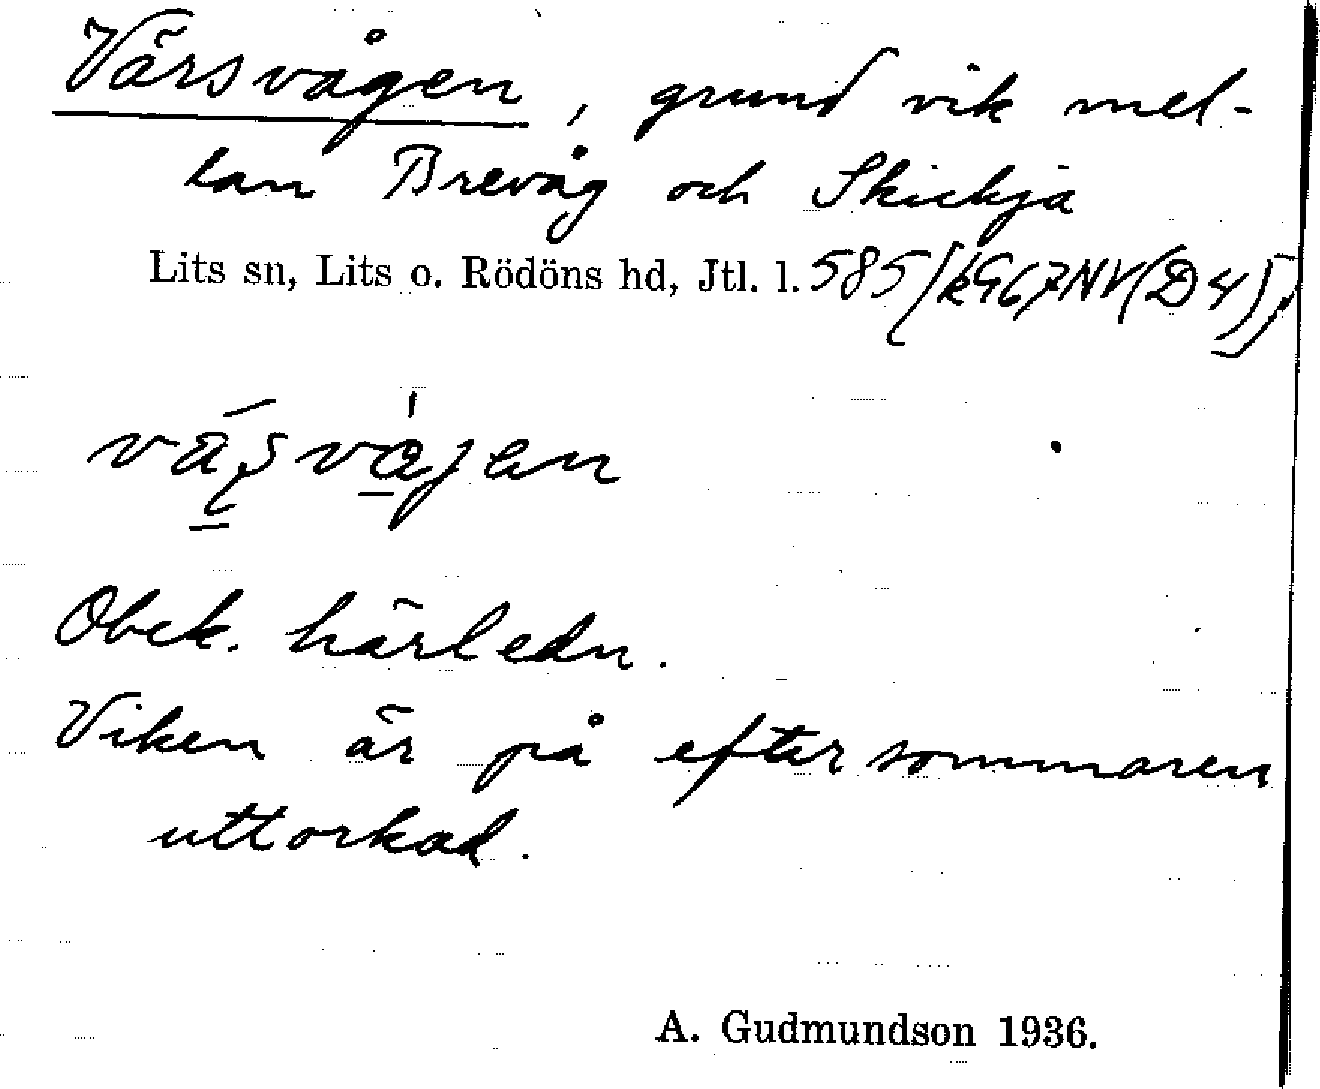 Värsvågen, grund vik mel-
lan Brevåg och Skickja
Lits sn, Lits o. Rödöns hd, Jtl. l. 585
Obek. härledn.
Viken är på eftersommaren
uttorkad.
A. Gudmundson 1936.